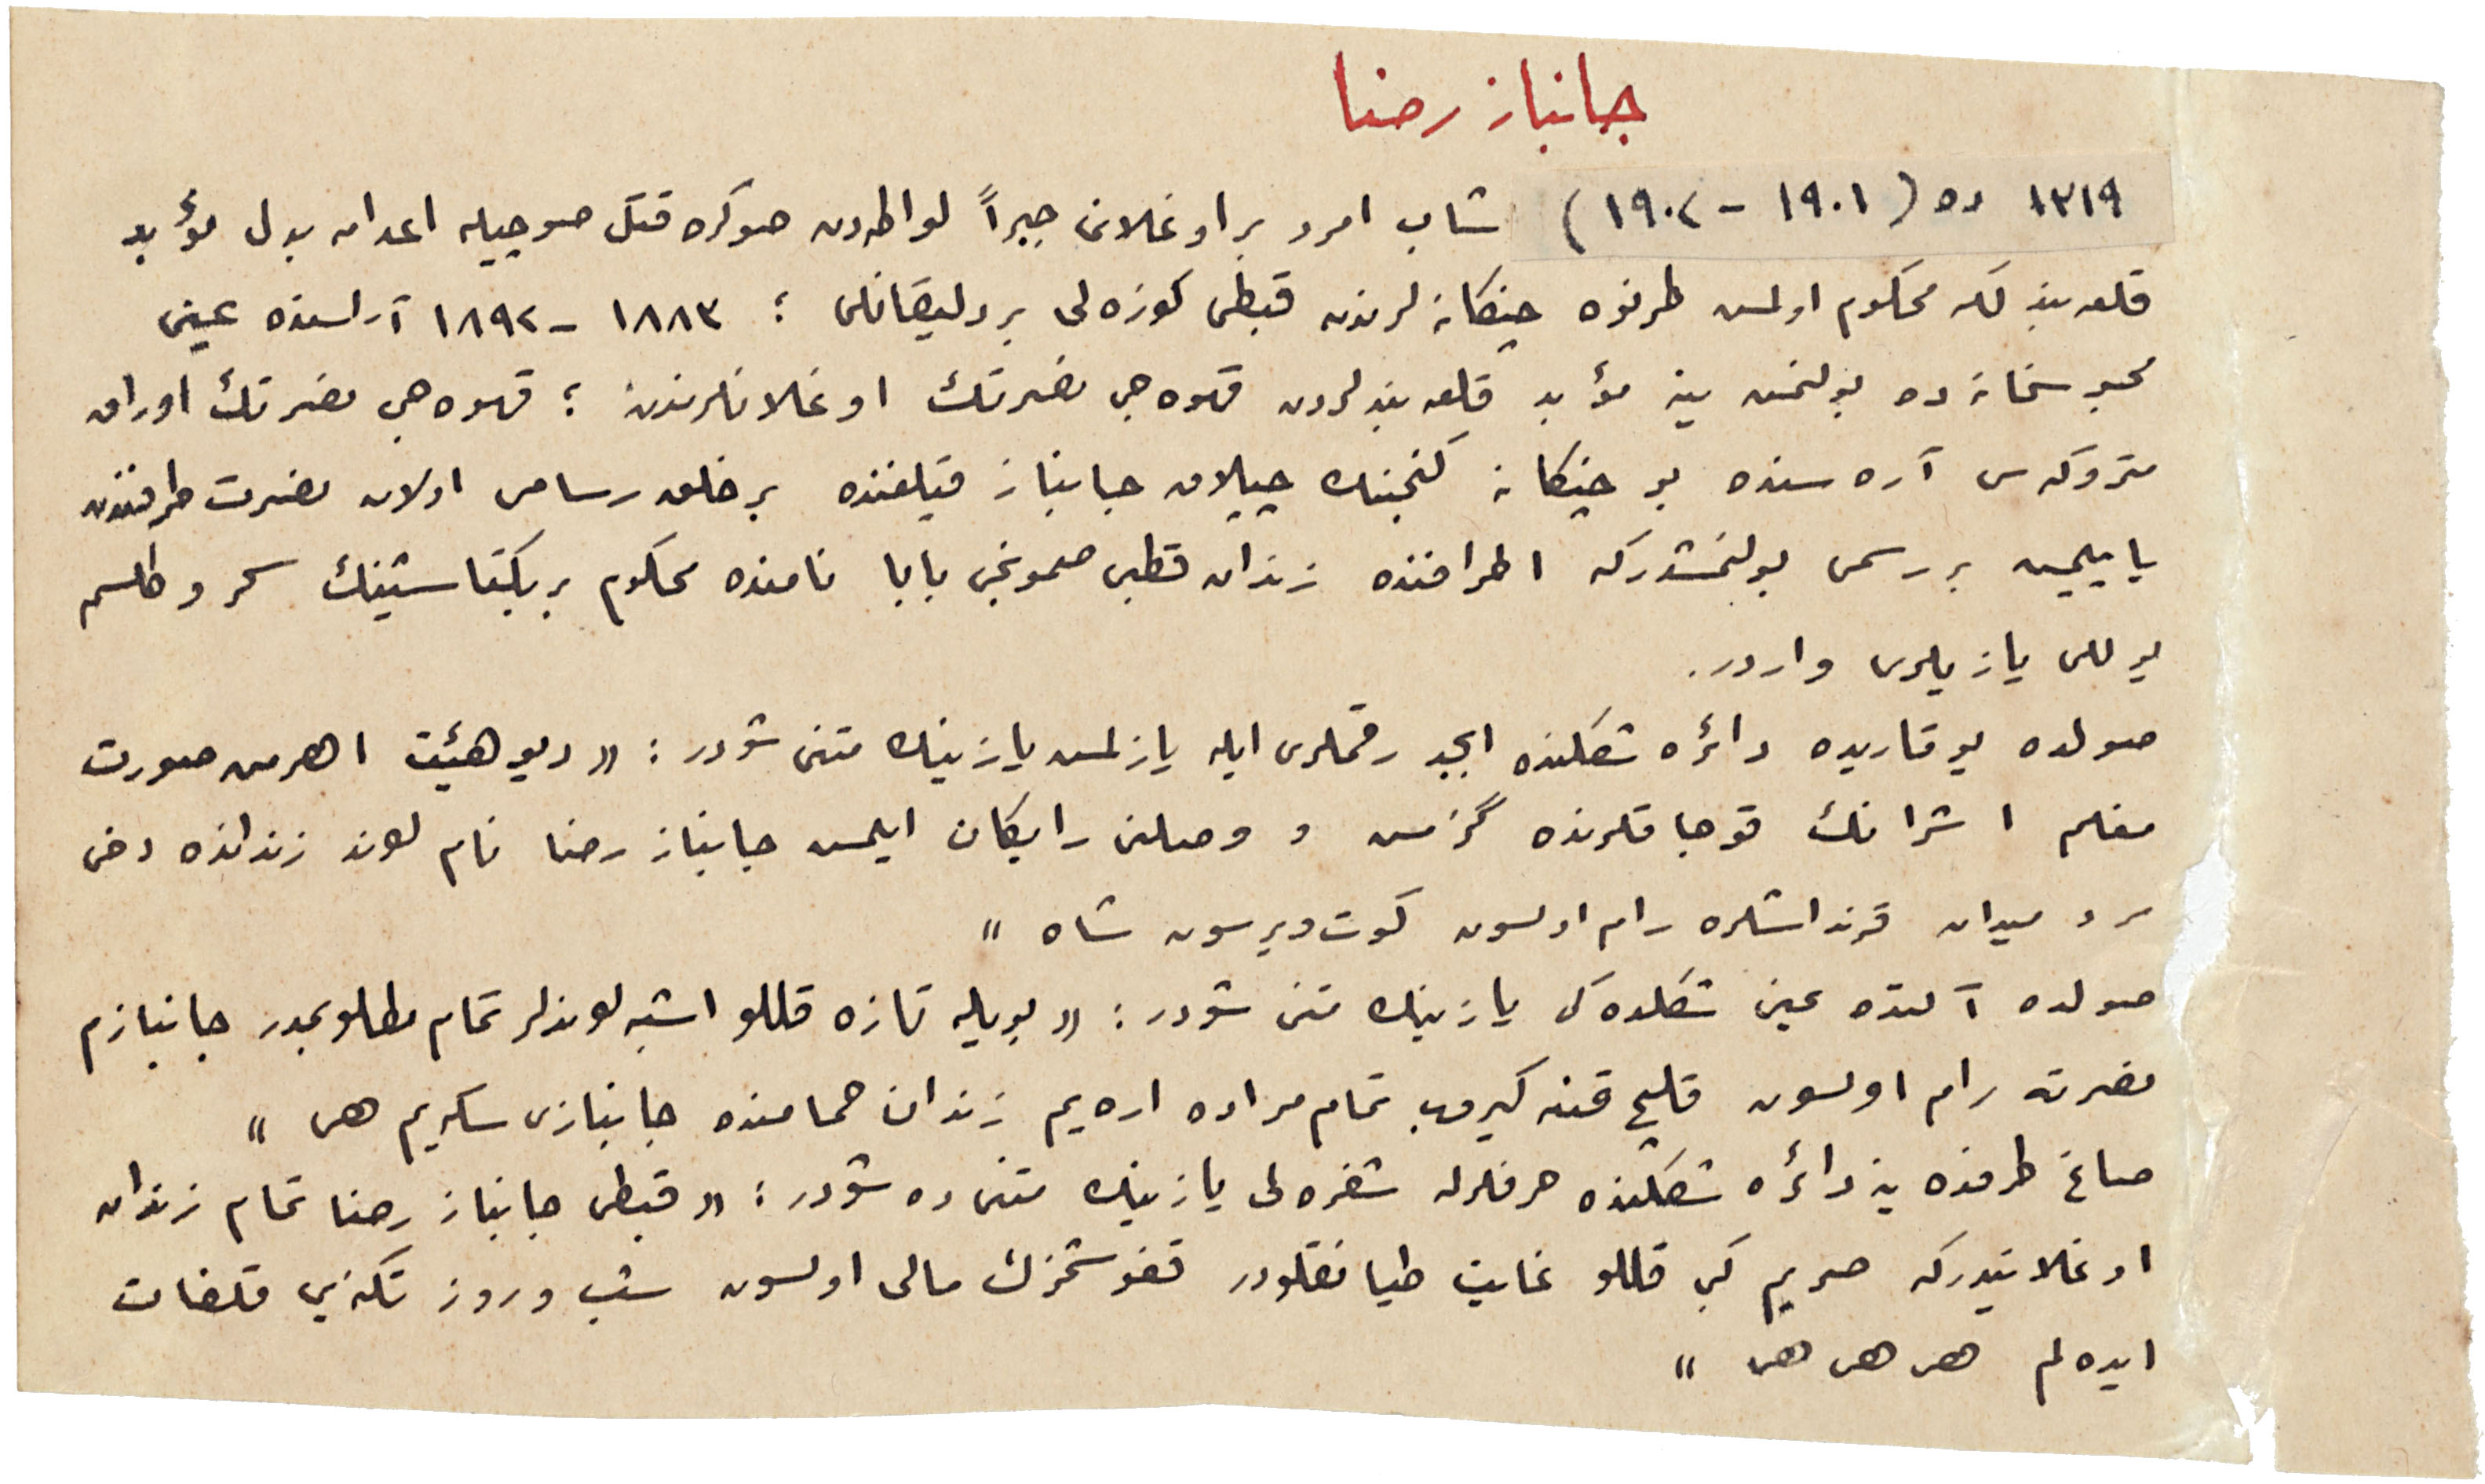 جانباز رضا
١٣١٩ ده (١٩٠١ - ١٩٠٢) شاب امرد بر اوغلانی جبراً لواطه‌دن صوكره قتل صوچیله اعدامه بدل مؤبد
قلعه‌بندلكه محكوم اولمش طرنوه چنكانه‌لرندن قبطی كوزه‌لی بر دلیقانلی ؛ ١٨٨٣ - ١٨٩٢ آراسنده عینی
محبوسخانه ده بولنمش ینه مؤبد قلعه‌بندلردن قهوه‌جی نصرتك اوغلانلرندن ؛ قهوه‌جی نصرتك اوراق
متروكه‌سی آره سنده بو چنكانه كنجینك چیپلاق جانباز قیلغنده بر خلق رسامی اولان نصرت طرفندن
یاپیلمش بر رسمی بولنمشدركه اطرافنده زندان قطبی صمونجی بابا نامنده محكوم بر بكتاشینك سحر و طلسم
یوللی یازیلری واردر.
صولده یوقاریده دائره شكلنده ابجد رقملری ایله یازلمش یازینك متنی شودر : « دیو هیئت اهرمن صورت
مفلم اشرانك قوجاقلرنده گزمش و وصلنی رایكان ایلمش جانباز رضا نام لوند زندانده دخی
مرد میدان قرنداشلره رام اولسون كوت ویرسون شاه »
صولده آلتده عین شكلده‌كی یازینك متنی شودر : « بویله تازه قللو اشبه لوندلر تمام مطلوبمدر جانبازم
نصرته رام اولسون قلیج قننه كیروب تمام مراده اره‌یم زندان حمامنده جانبازی سكه‌یم هی »
صاغ طرفده ینه دائره شكلنده حرفلرله شفره‌لی یازینك متنی ده شودر : « قبطی جانباز رضا تمام زندان
اوغلانیدركه حریم كبی قللو غایت طیانقلودر قغوشمزك مالی اولسون شب و روز تكه‌یی قلفات
ایده لم هی هی هی »